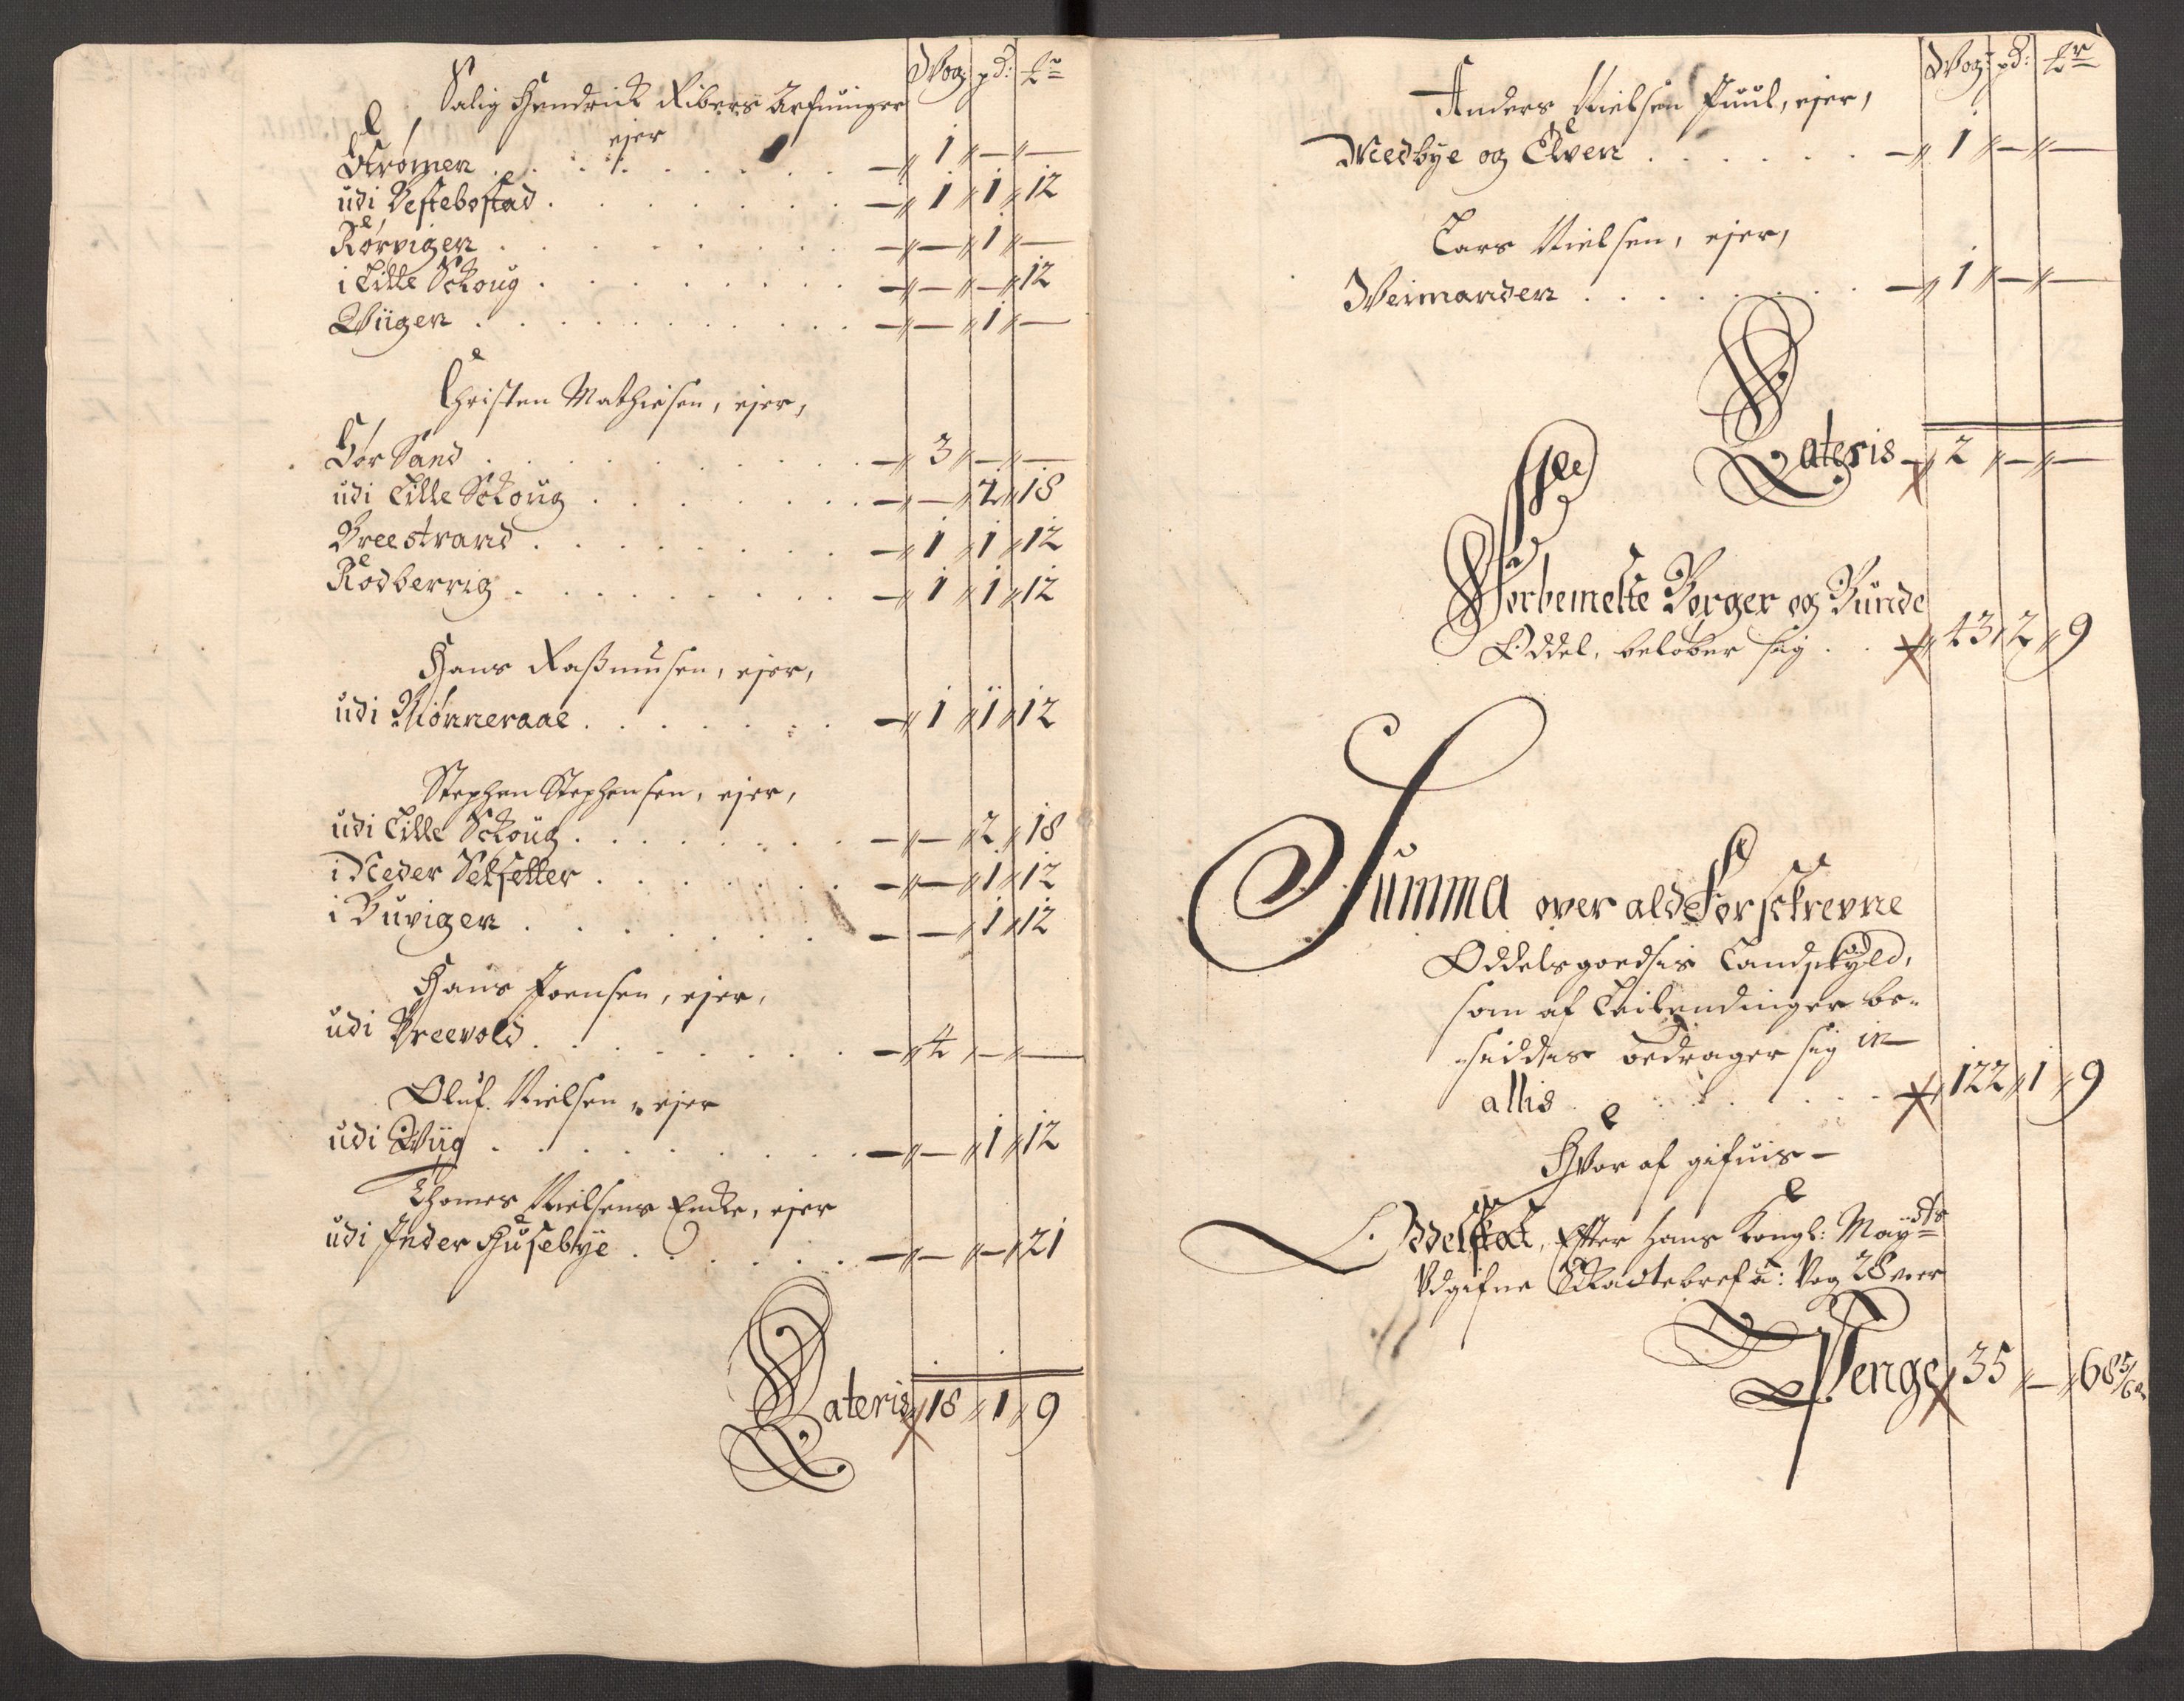 Wog: pd: ℔r
Salig Hendrich Ribers Arfuinger
ejer
Strømen . . . . . . . . — 1 — —
udi Vestebostad . . . . . . — 1 1 12
Rørvigen . . . . . . . — — 1 —
i Lille Skoug . . . . . . . — — — 12
Wiigen . . . . . . . . — — 1 —
Christen Mathiesen, ejer,
Sør Sand . . . . . . . . — 3 — —
udi Lille Skoug . . . . . . — — 2 18
Breestrand . . . . . . . — 1 1 12
Rødberrig . . . . . . . — 1 1 12
Hans Raßmusen, ejer,
udi Mønneraae . . . . . . — 1 1 12
Stephen Stephensen, ejer,
udi Lille Skoug . . . . . . — — 2 18
i Neder Selsetter . . . . . . — — 1 12
i Buvigen . . . . . . . — — 1 12
Hans Joensen, ejer,
udi Breevold . . . . . . . — 4 — —
Oluf Nielsen, ejer
udi Wiig . . . . . . . . — — 1 12
Thomes Nielsens Encke, ejer
udi Inder Husebye . . . . . — — — 21
Lateris 18 1 9
Wog: pd: ℔r
Anders Nielsen Juul, ejer,
Medbye og Elven . . . . . . — 1 — —
Lars Nielsen, ejer,
Weimanden . . . . . . . — 1 — —
Lateris — 2 — —
Forbemelte Borger og Bunde
Oddel, beløber sig . . 43 2 9
Summa over alde Forschrevne
Oddelsgodsis Landskyld,
som af Leilendinger be-
siddes bedrager sig in
allis . . . . . . 122 1 9
Hvor af gifuis —
Oddelskat, Efter Hans Kongl: Mayds
Udgifne Skattebref à: Vog 28 ..
Penge 35 — 68 5/6